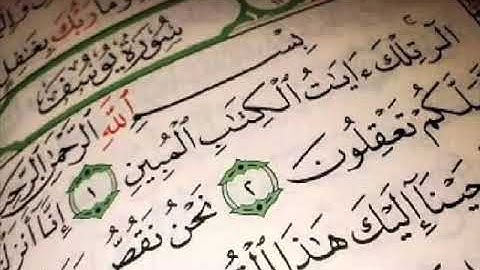 وَمَا رَبُّكَ بِغَـٰفِلٍ
سُورَةُ يُوسُفَ
بِسْمِ ٱللَّهِ ٱلرَّحْمَـٰنِ ٱلرَّحِيمِ
الٓر تِلْكَ ءَايَـٰتُ ٱلْكِتَـٰبِ ٱلْمُبِينِ ١ إِنَّآ أَنزَلْ
لَّكُمْ تَعْقِلُونَ ٢ نَحْنُ نَقُصُّ
حَيْنَآ إِلَيْكَ هَـٰذَا